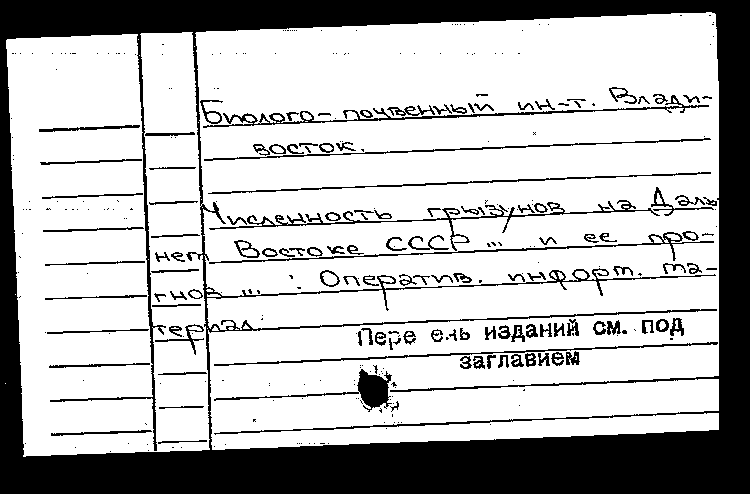 Биолого-почвенный ин-т. Влади-
восток.
Численность грызунов на Даль-
нем Востоке СССР ... и ее про-
гноз ... : Оператив. информ. ма-
териал.
изданий см. под
заглавием